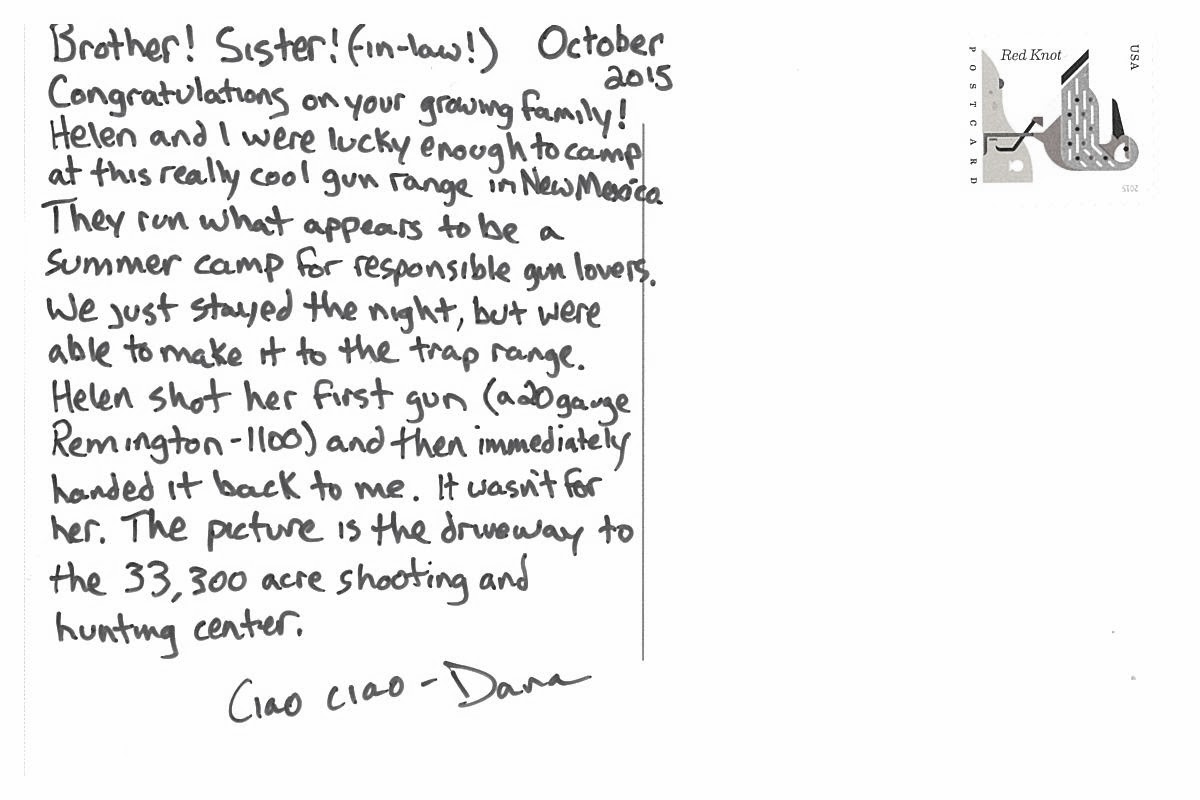 Brother! Sister! (-in-law!) October
2015
Congratulations on your growing family!
Helen and I were lucky enough to camp
at this really cool gun range in New Mexico.
They run what appears to be a
summer camp for responsible gun lovers.
We just stayed the night, but were
able to make it to the trap range.
Helen shot her first gun (a 20 gauge
Remington-1100) and then immediately
handed it back to me. It wasn't for
her. The picture is the driveway to
the 33,300 acre shooting and
hunting center.
Ciao ciao - Dana
Red Knot
USA
POSTCARD
2015